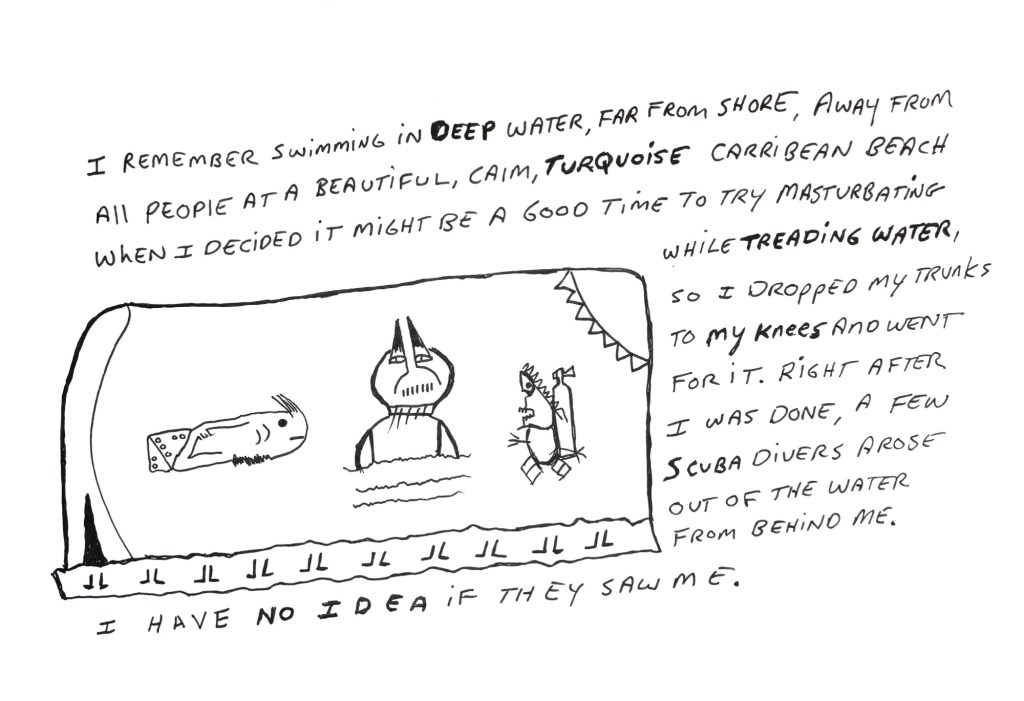 I REMEMBER SWIMMING IN DEEP WATER, FAR FROM SHORE, AWAY FROM
ALL PEOPLE AT A BEAUTIFUL, CALM, TURQUOISE CARRIBEAN BEACH
WHEN I DECIDED IT MIGHT BE A GOOD TIME TO TRY MASTURBATING
WHILE TREADING WATER,
SO I DROPPED MY TRUNKS
TO MY KNEES AND WENT
FOR IT. RIGHT AFTER
I WAS DONE, A FEW
SCUBA DIVERS AROSE
OUT OF THE WATER
FROM BEHIND ME.
I HAVE NO IDEA IF THEY SAW ME.